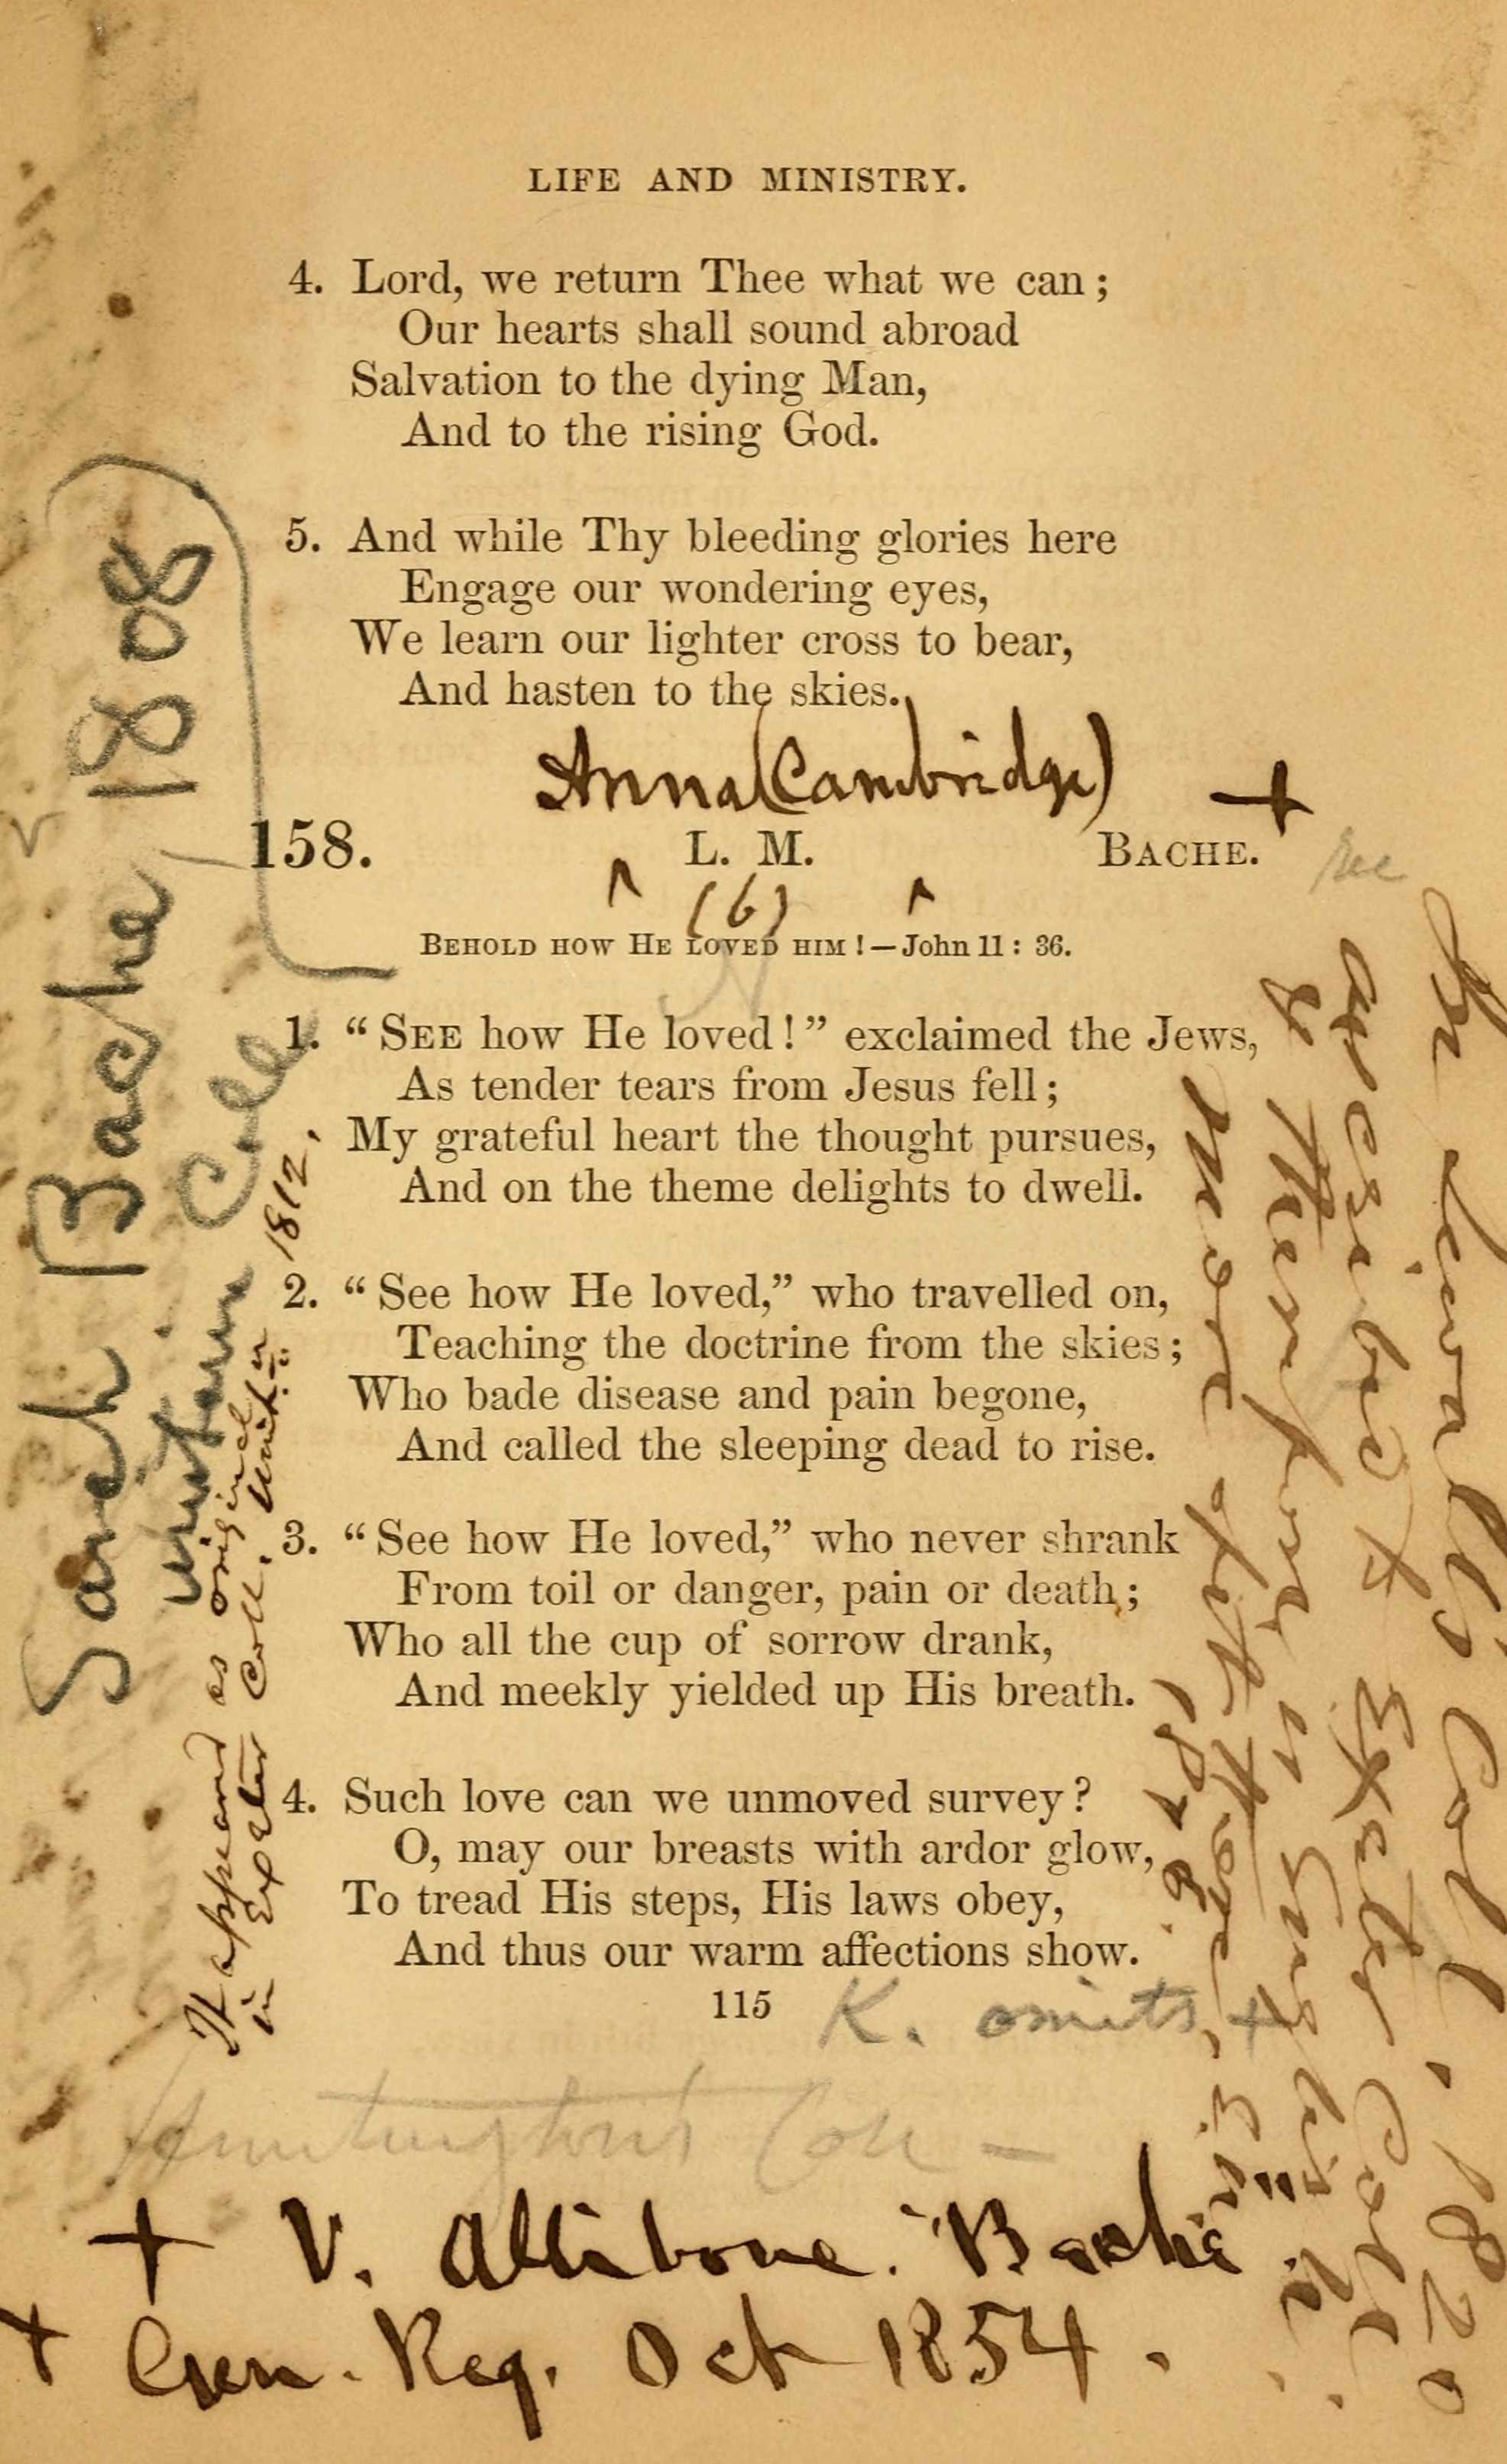 LIFE AND MINISTRY.
4. Lord, we return Thee what we can;
Our hearts shall sound abroad
Salvation to the dying Man,
And to the rising God.
5. And while Thy bleeding glories here
Engage our wondering eyes,
We learn our lighter cross to bear,
And hasten to the skies.
Anna (Cambridge)
158. L. M. BACHE. +
(6)
BEHOLD HOW HE LOVED HIM!—John 11: 36.
1. “SEE how He loved!” exclaimed the Jews,
As tender tears from Jesus fell;
My grateful heart the thought pursues,
And on the theme delights to dwell.
2. “See how He loved,” who travelled on,
Teaching the doctrine from the skies;
Who bade disease and pain begone,
And called the sleeping dead to rise.
3. “See how He loved,” who never shrank
From toil or danger, pain or death;
Who all the cup of sorrow drank,
And meekly yielded up His breath.
4. Such love can we unmoved survey?
O, may our breasts with ardor glow,
To tread His steps, His laws obey,
And thus our warm affections show.
115
K. omits +
Huntington's Coll —
+ V. Allibone. "Bache".
+ Gen. Reg. Oct 1854.
Sarah Bache, 1808
Coll
It appeared as original
in Exeter Coll. 1812.
In Sewall's Coll. 1820
ascribed to Exeter Coll.
& therefore is English.
1828.